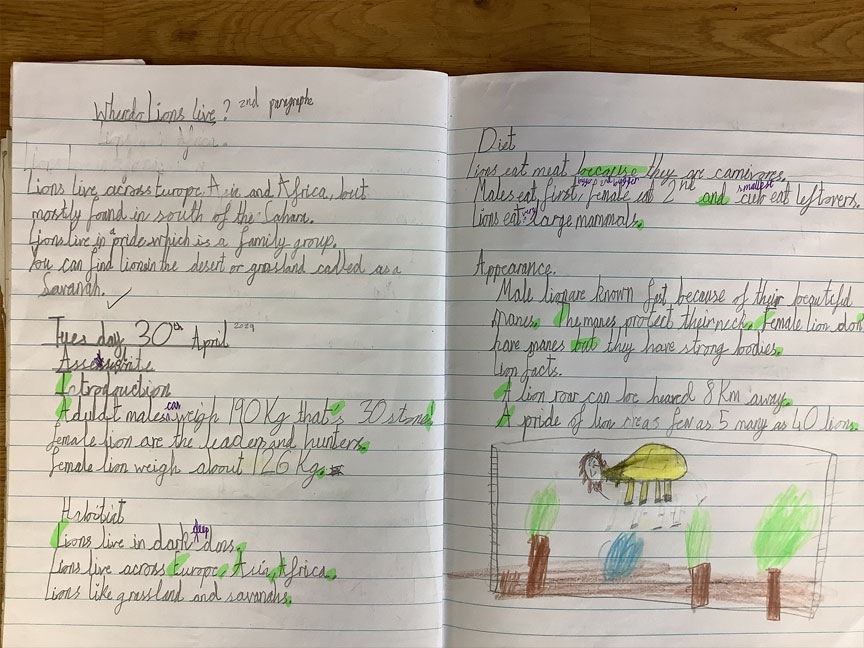 Wheredo Lions live? 2nd paragraphe
Lions live across Europe, Asia and Africa, but
mostly found in south of the Sahara.
Lions live in a pride which is a family group.
You can find lions in the desert or grassland called as a
Savanah.
Tuesday 30th April 2024
Introduction
Aduldt males can weigh 190 Kg that's 30 stone!
female lion are the leader and hunters.
female lion weigh about 126 Kg.
Habitiat
Lions live in dark deep dens.
Lions live across Europe, Asia, Africa.
Lions like grassland and savanahs.
Diet
Lions eat meat because they are carnivores.
Males eat first, female eat 2nd and smallest cub eat leftovers.
Lions eat large mammals.
Appearance.
Male lion are known fast because of their beautiful
manes. The manes protect their neck. Female lion don't
have manes but they have strong bodies.
Lion facts.
A lion roar can be heared 8 Km away.
A pride of lion as few as 5 many as 40 lions.